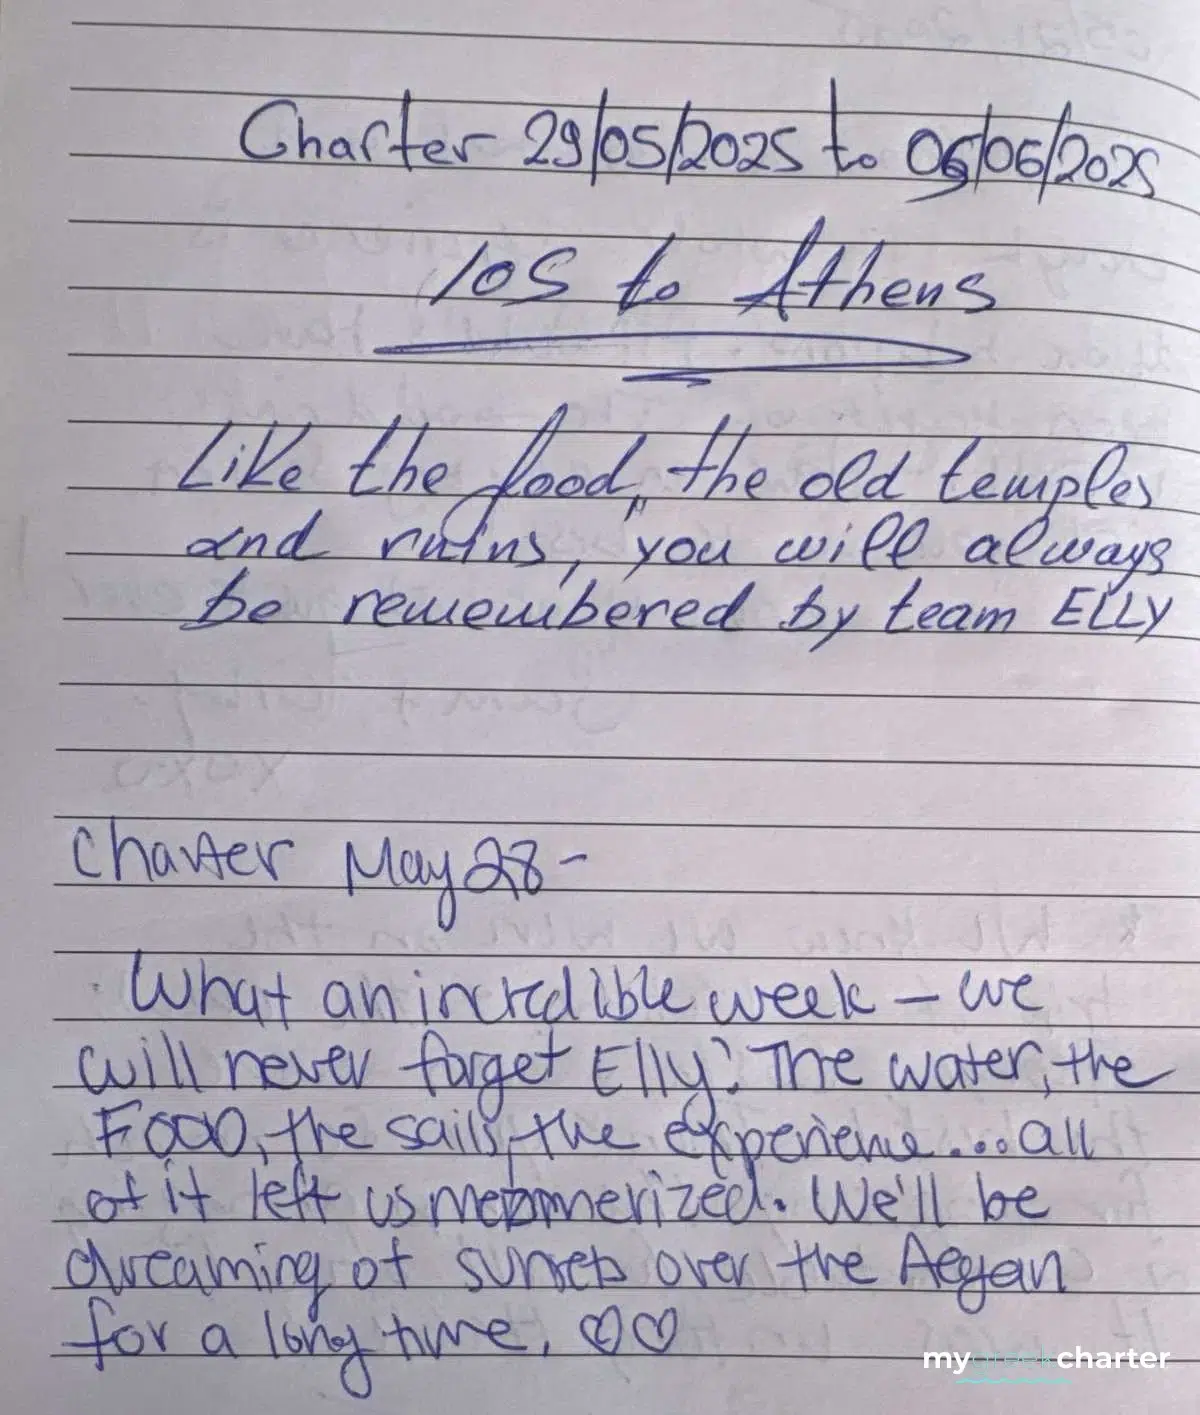 Charter 29/05/2025 to 06/06/2025
IOS to Athens
Like the food, the old temples
and ruins, you will always
be remembered by team ELLY
Charter May 28 -
What an incredible week - we
will never forget Elly! The water, the
Food, the sails, the experience... all
of it left us mesmerized. We'll be
dreaming of sunsets over the Aegan
for a long time. ♡♡
mygreekcharter